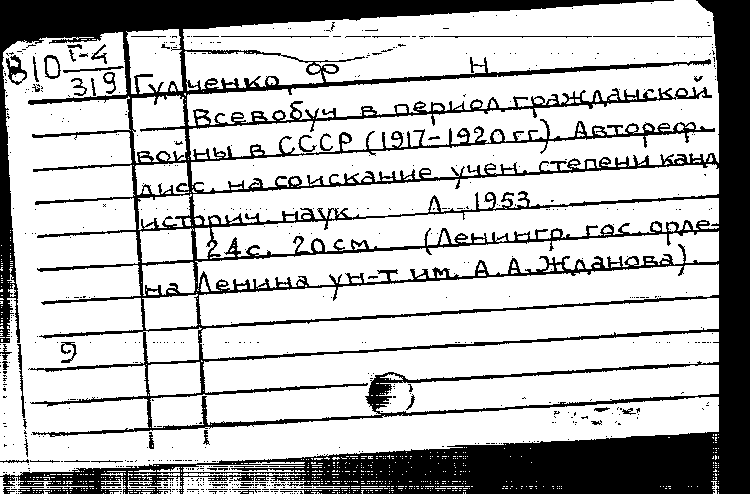 В10 Г-4
319
Гудченко, Ф Н
Всевобуч в период гражданской
войны в СССР (1917-1920 гг). Автореф.
дисс. на соискание учен. степени канд
историч. наук. Л., 1953.
24с. 20см. (Ленингр. гос. орде-
на Ленина ун-т им. А.А.Жданова).
9